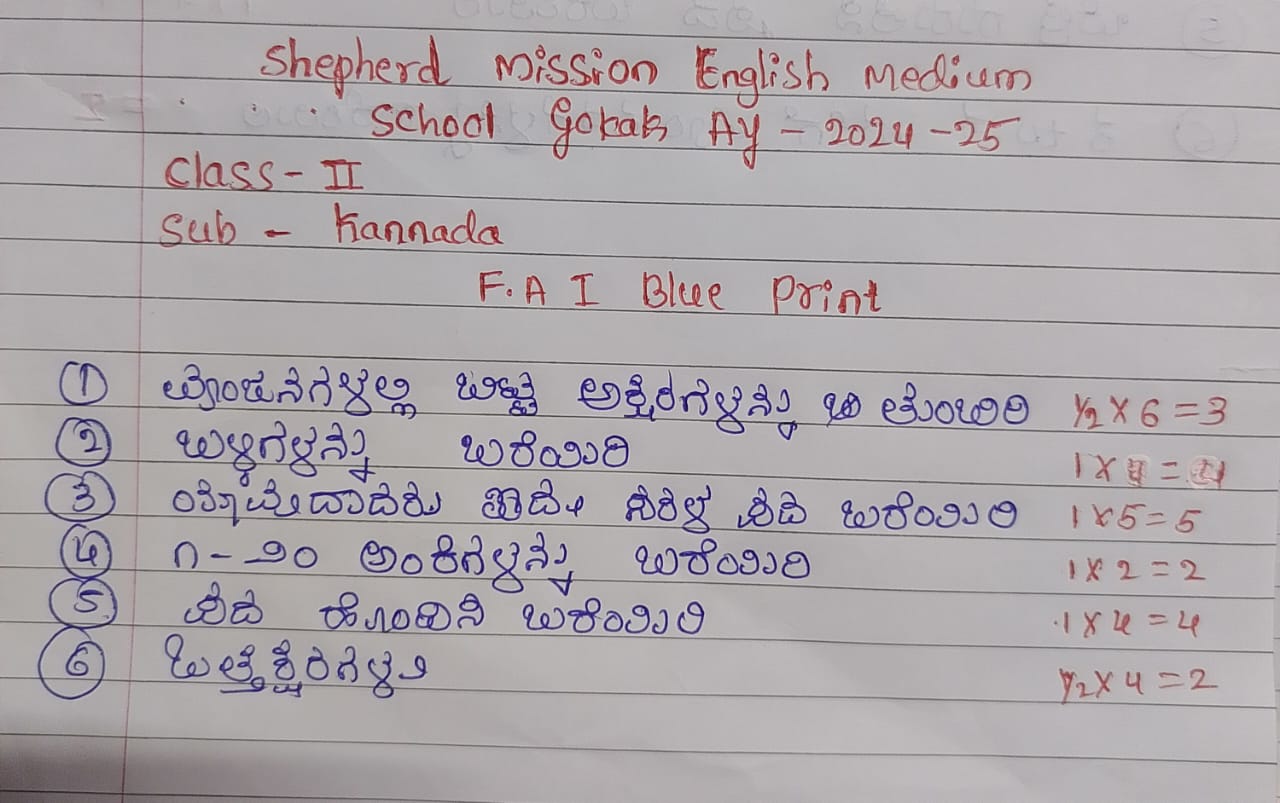 Shepherd Mission English Medium
School Gokak AY - 2024-25
Class - II
Sub - Kannada
F.A I Blue Print
① ವ್ಯಂಜನಗಳಲ್ಲಿ ಬಿಟ್ಟ ಅಕ್ಷರಗಳನ್ನು ತುಂಬಿರಿ ½ x 6 = 3
② ಬಳ್ಳಿಗಳನ್ನು ಬರೆಯಿರಿ 1 x 4 = 4
③ ಯಾವುದಾದರು ಐದು ಸರಳ ಪದ ಬರೆಯಿರಿ 1 x 5 = 5
④ ೧-೨೦ ಅಂಕಿಗಳನ್ನು ಬರೆಯಿರಿ 1 x 2 = 2
⑤ ಪದ ಹೊಂದಿಸಿ ಬರೆಯಿರಿ 1 x 4 = 4
⑥ ಒತ್ತಕ್ಷರಗಳು ½ x 4 = 2